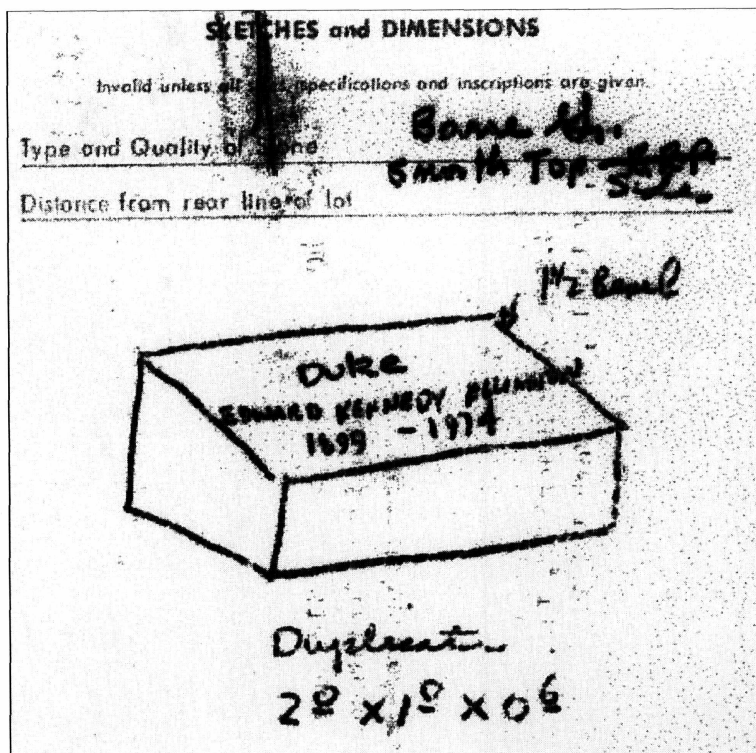 SKETCHES and DIMENSIONS
Invalid unless all specifications and inscriptions are given
Type and Quality of Stone Barre
Smooth Top
Distance from rear line of lot
1 1/2 Bevel
Duke
EDWARD KENNEDY ELLINGTON
1899 - 1974
Duplicate
2 0 X 1 0 X 0 6